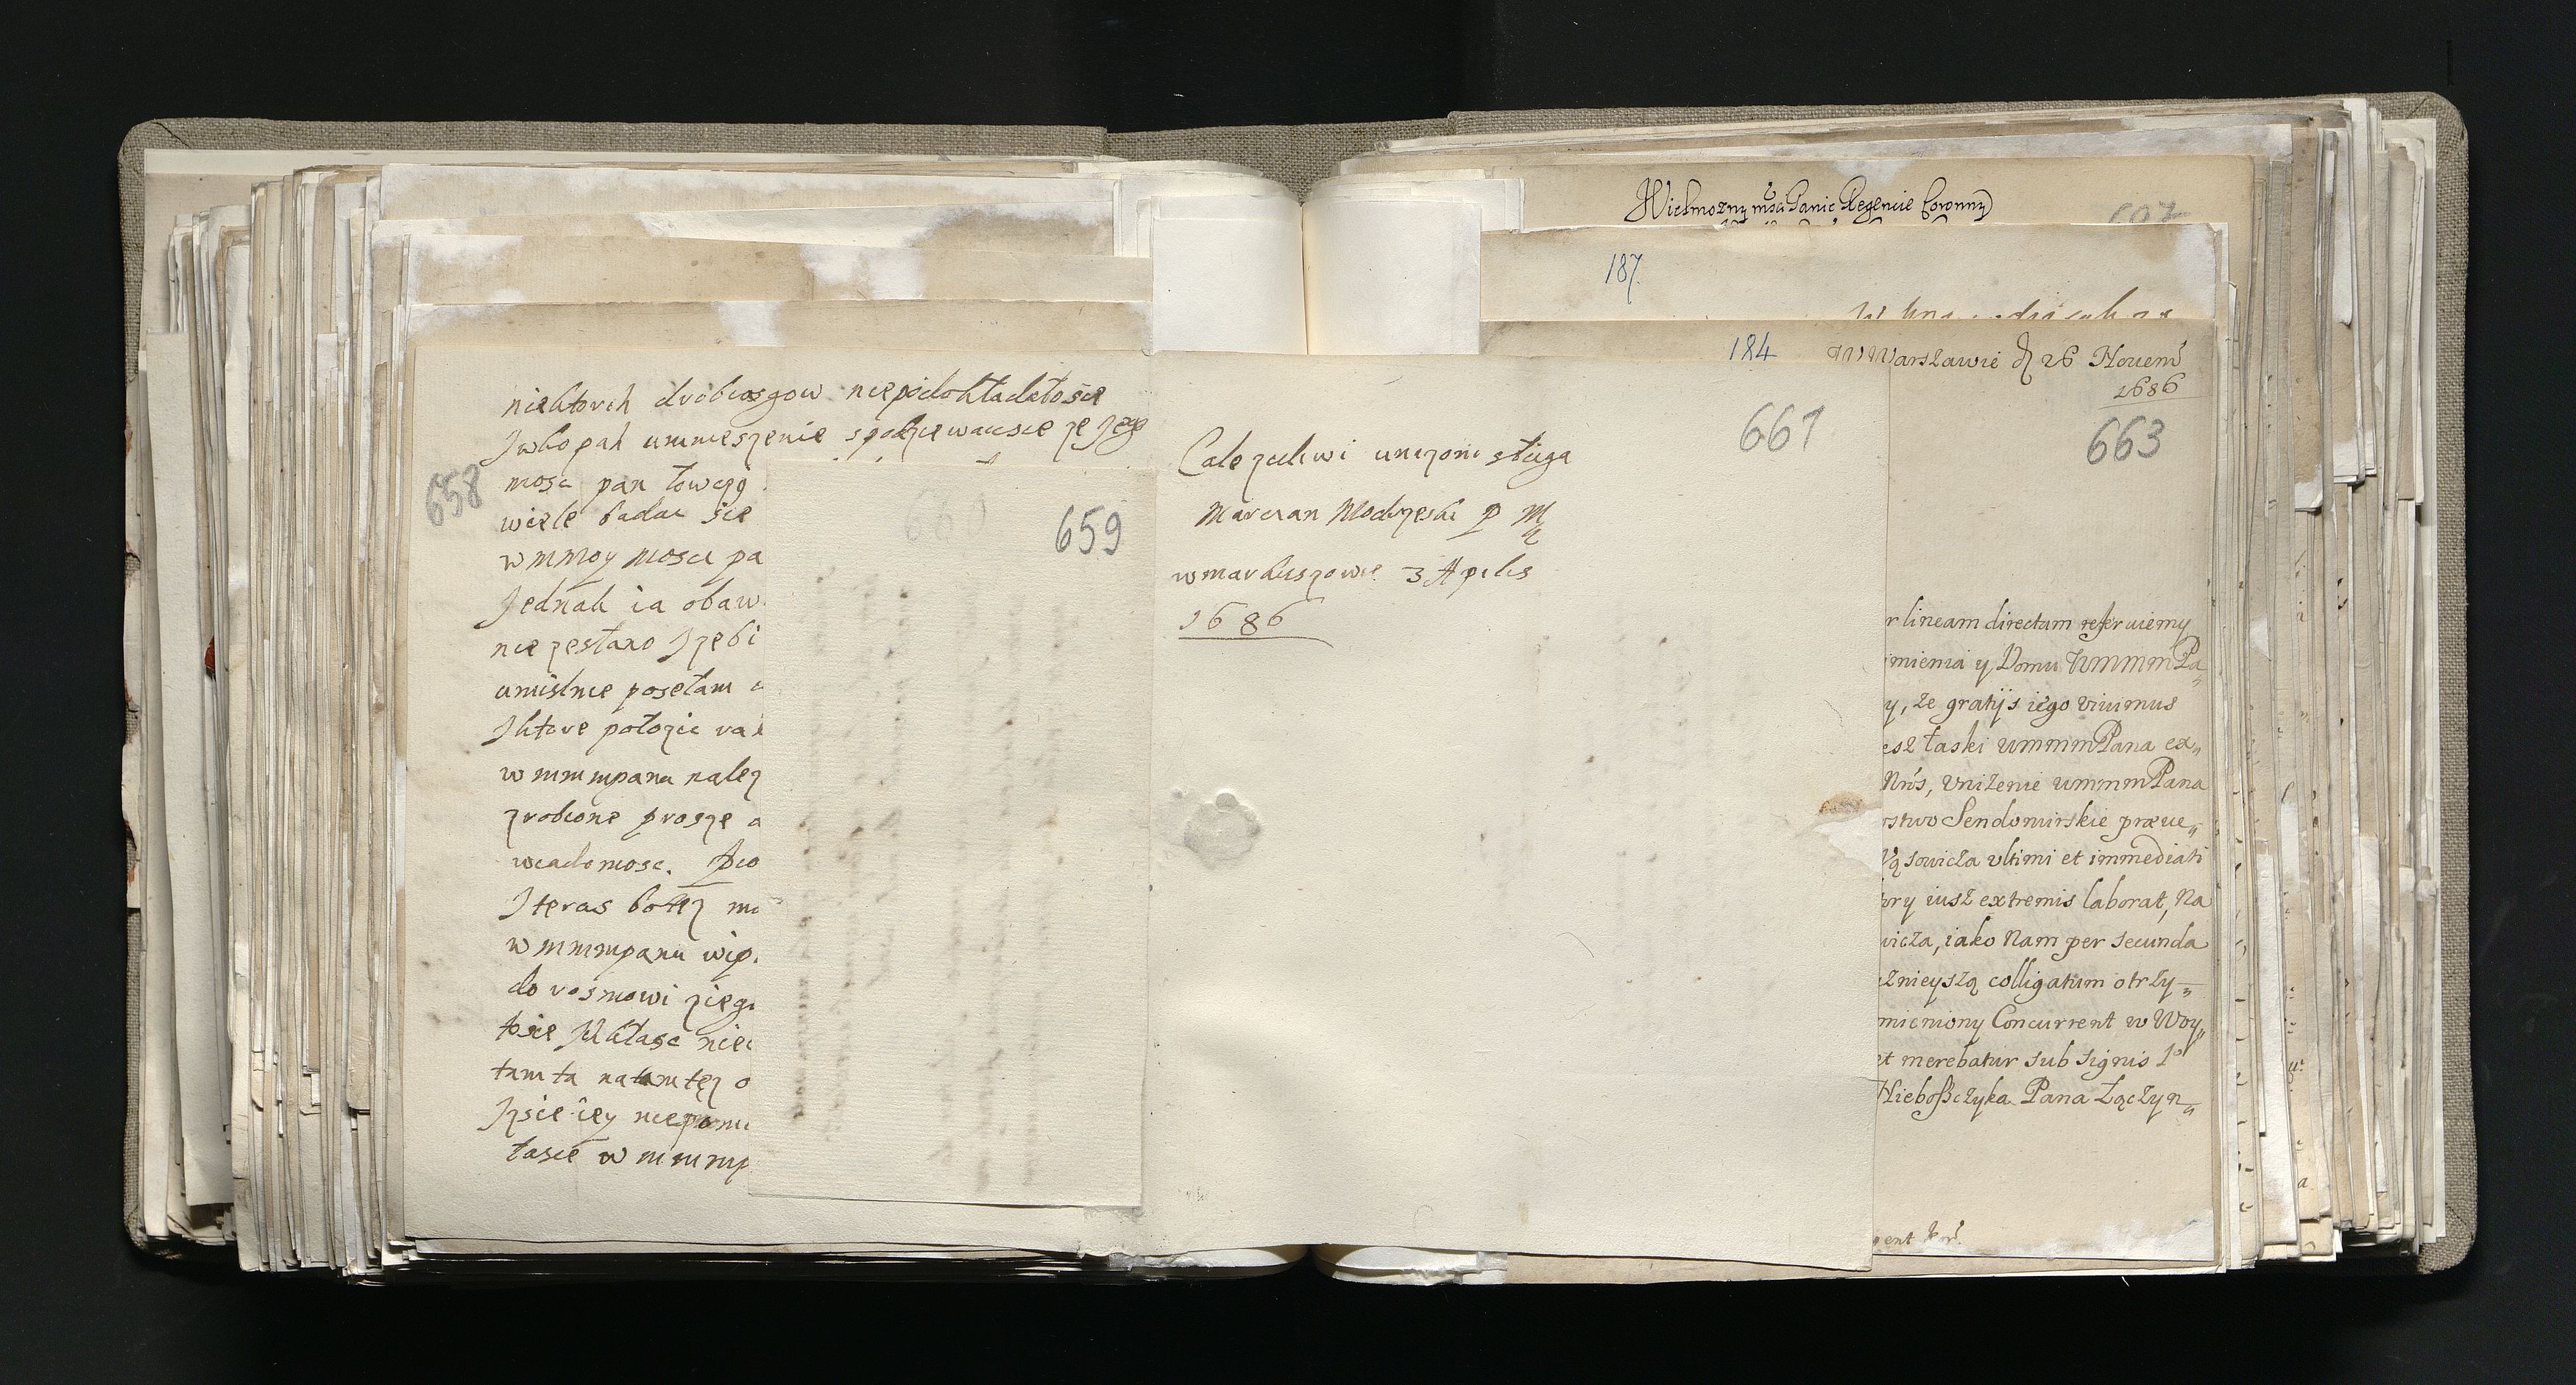 niektorch drobiosgow niepodokładałosie
Jwbopak umnieszenie spodziewacsie ze Jego
658
mosc pan towarz
wiele badac sie
wmmoy mosci pa
Jednak ia obaw
nie zestaro Jzebi
umislnie posełam
Jktore połozic ra
wmmmpana nalez
zrobione prosze a
wiadomosc.
Jteras botez m
wmmmpanu wip
do rosmowi ziego
tosie
tamta natamtez o
Jzsie iey niepomi
tasie wmmmp
659
Całezycliwi unizoni sługa
Marcian Modrzeski P M
wmarkuszowie 3 Aprilis
1686
661
Wielmozny mści Panie Regencie Coronny
187.
184
Warszawie d 26 Novem
1686
663
r lineam directam referuiemy
imienia y Domu WmmmPa„
y, że gratijs iego vivimus
esz łaski WmmmPana ex„
Nrś, Vniżenie WmmmPana
stwo Sendomirskie præve„
Wąsowicza vltimi et immediati
ory iusz extremis laborat, Na
wicza, iako Nam per secunda
żnieyszą colligatum otrzy„
mieniony Concurrent w Woy„
et merebatur sub signis
Nieboszczyka Pana Łączyn„
gent